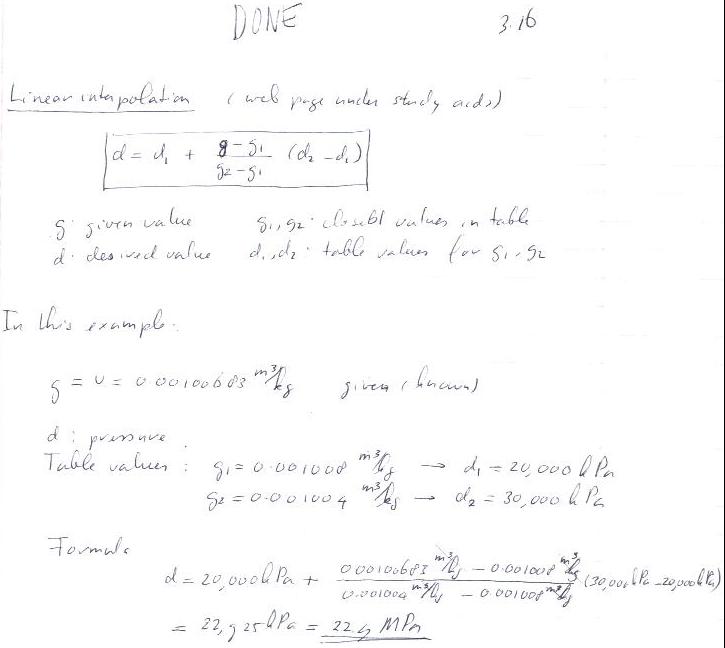 DONE 3.16
Linear interpolation (web page under study aids)
d = d₁ + (g - g₁)/(g₂ - g₁) (d₂ - d₁)
g: given value g₁, g₂: closest values in table
d: desired value d₁, d₂: table values for g₁, g₂
In this example:
g = v = 0.00100683 m³/kg given (known)
d: pressure
Table values: g₁ = 0.001008 m³/kg → d₁ = 20,000 kPa
g₂ = 0.001004 m³/kg → d₂ = 30,000 kPa
Formula
d = 20,000 kPa + (0.00100683 m³/kg - 0.001008 m³/kg)/(0.001004 m³/kg - 0.001008 m³/kg) (30,000 kPa - 20,000 kPa)
= 22,925 kPa = 22.9 MPa